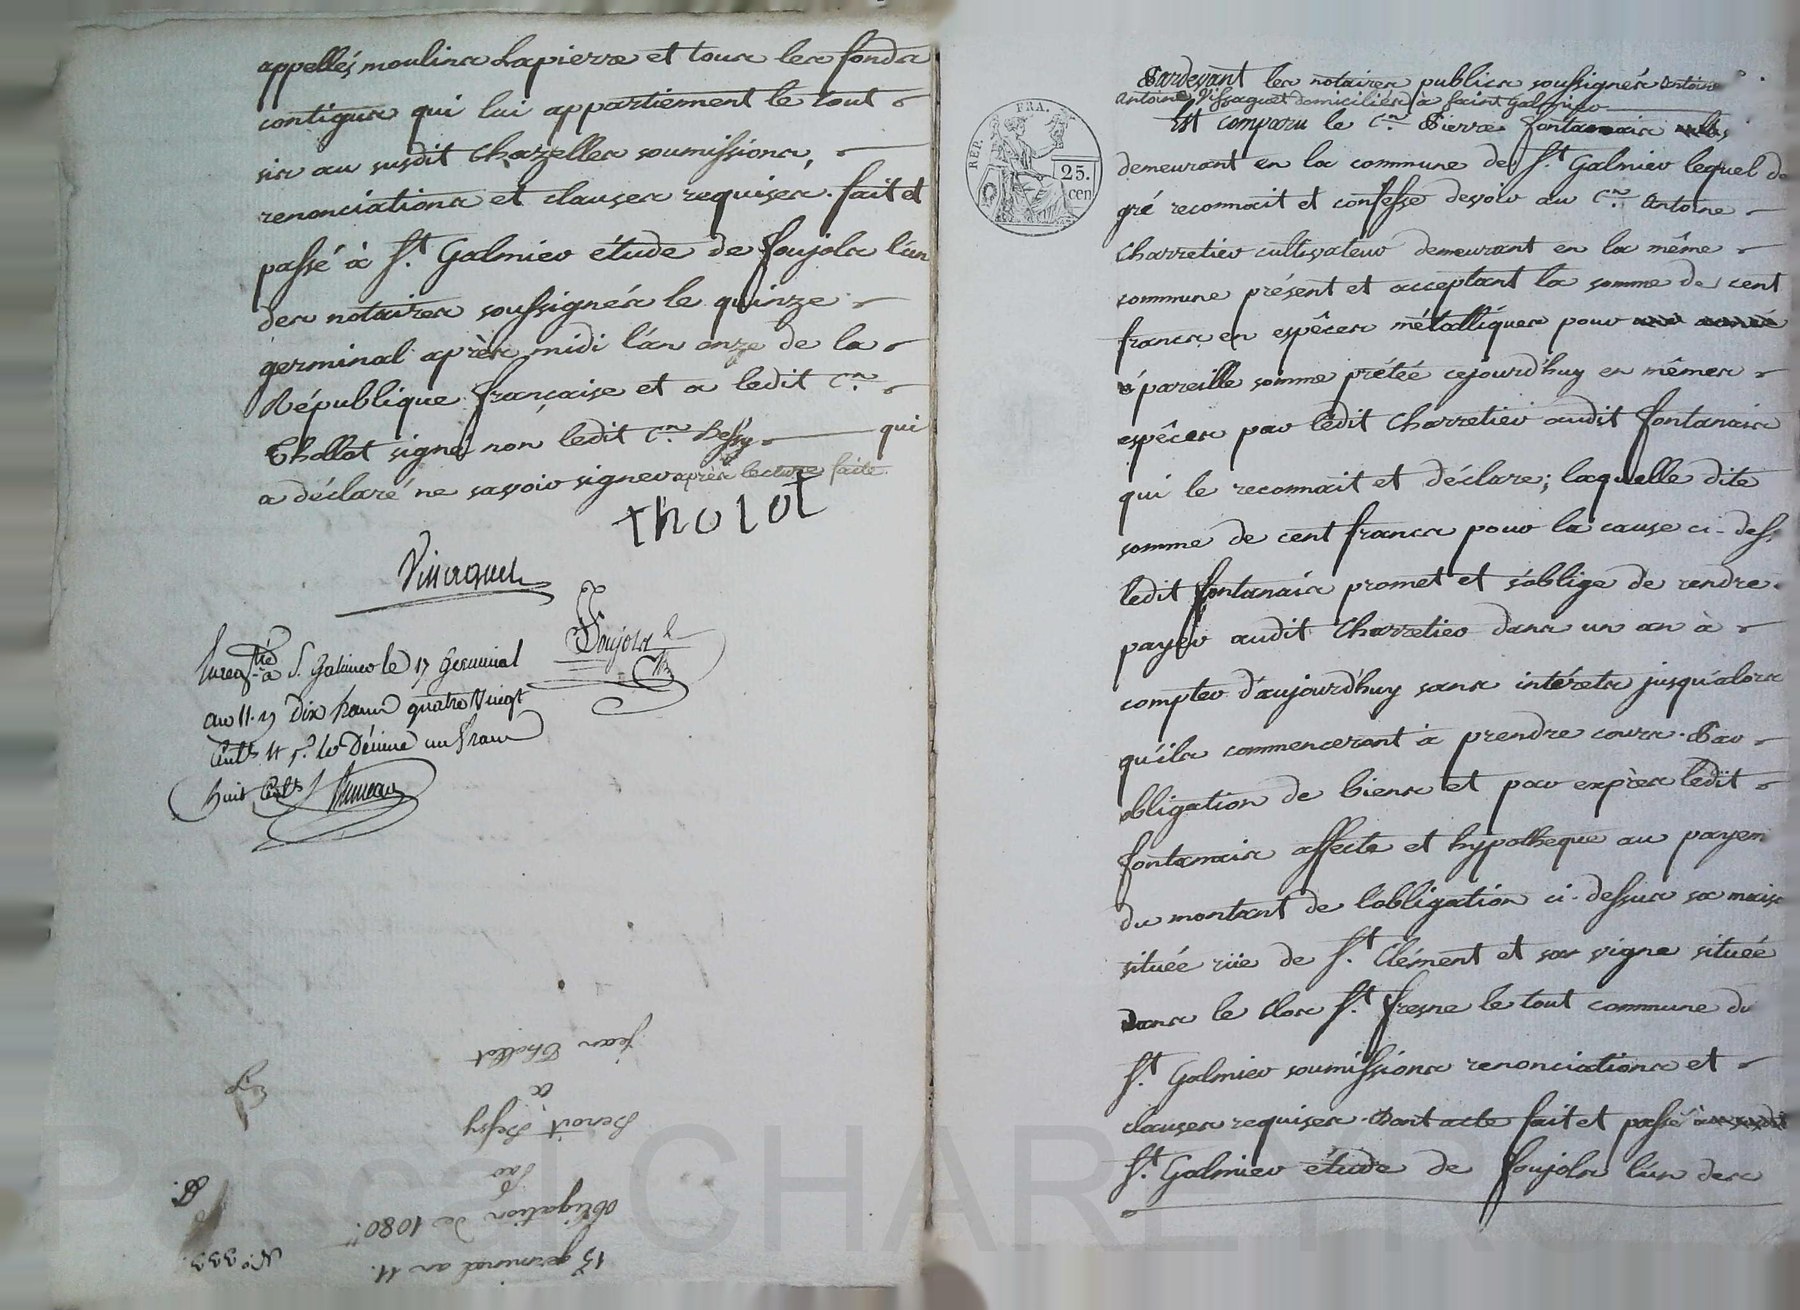 appellés moulins Lapierre et tous les fonds
contigus qui lui appartiennent le tout
sis au susdit Chazelles soumissions,
renonciations et clauses requises. fait et
passé à St. Galmier étude de Joujols l'un
des notaires soussignés le quinze
germinal après midi l'an onze de la
République française et a ledit Cen.
Thollot signé non ledit Cen. Bessy qui
a déclaré ne savoir signer après lecture faite
tholot
Vissaguet
Joujols
Enregtré à S. Galmier le 17 Germinal
an 11. dix francs quatre Vingt
Cents pr. le Décime un franc
huit Cents
jean Thollot
a
benoit bessy
par
obligation de 1080.
15 germinal an 11.
N.o 333.
Pardevant les notaires publics soussignés
Antoine Vissaguet domiciliés a saint Galmier
Est comparu le Cen. Pierre fontanais
demeurant en la commune de St. Galmier lequel de
gré reconnait et confesse devoir au Cen. Antoine
Charretier cultivateur demeurant en la même
commune présent et acceptant la somme de cent
francs en espêces métalliques pour
pareille somme prétéé cejourd'huy en mêmes
espêces par ledit Charretier audit fontanais
qui le reconnait et déclare; laquelle dite
somme de cent francs pour la cause ci-dess.
ledit fontanais promet et s'oblige de rendre
payer audit Charretier dans un an à
compter d'aujourd'huy sans intérets jusqu'alors
qu'ils commenceront à prendre cours. Par
obligation de biens et par exprès ledit
fontanais affecte et hypotheque au payem
du montant de l'obligation ci-dessus sa maiso
située rüe de St. Clément et sa vigne située
Dans le clos St. fresne le tout commune du
St. Galmier soumissions renonciations et
clauses requises. Dont acte fait et passé
St. Galmier étude de Joujols l'un des
REP. FRA.
25.
cen
Pascal CHAREYRON